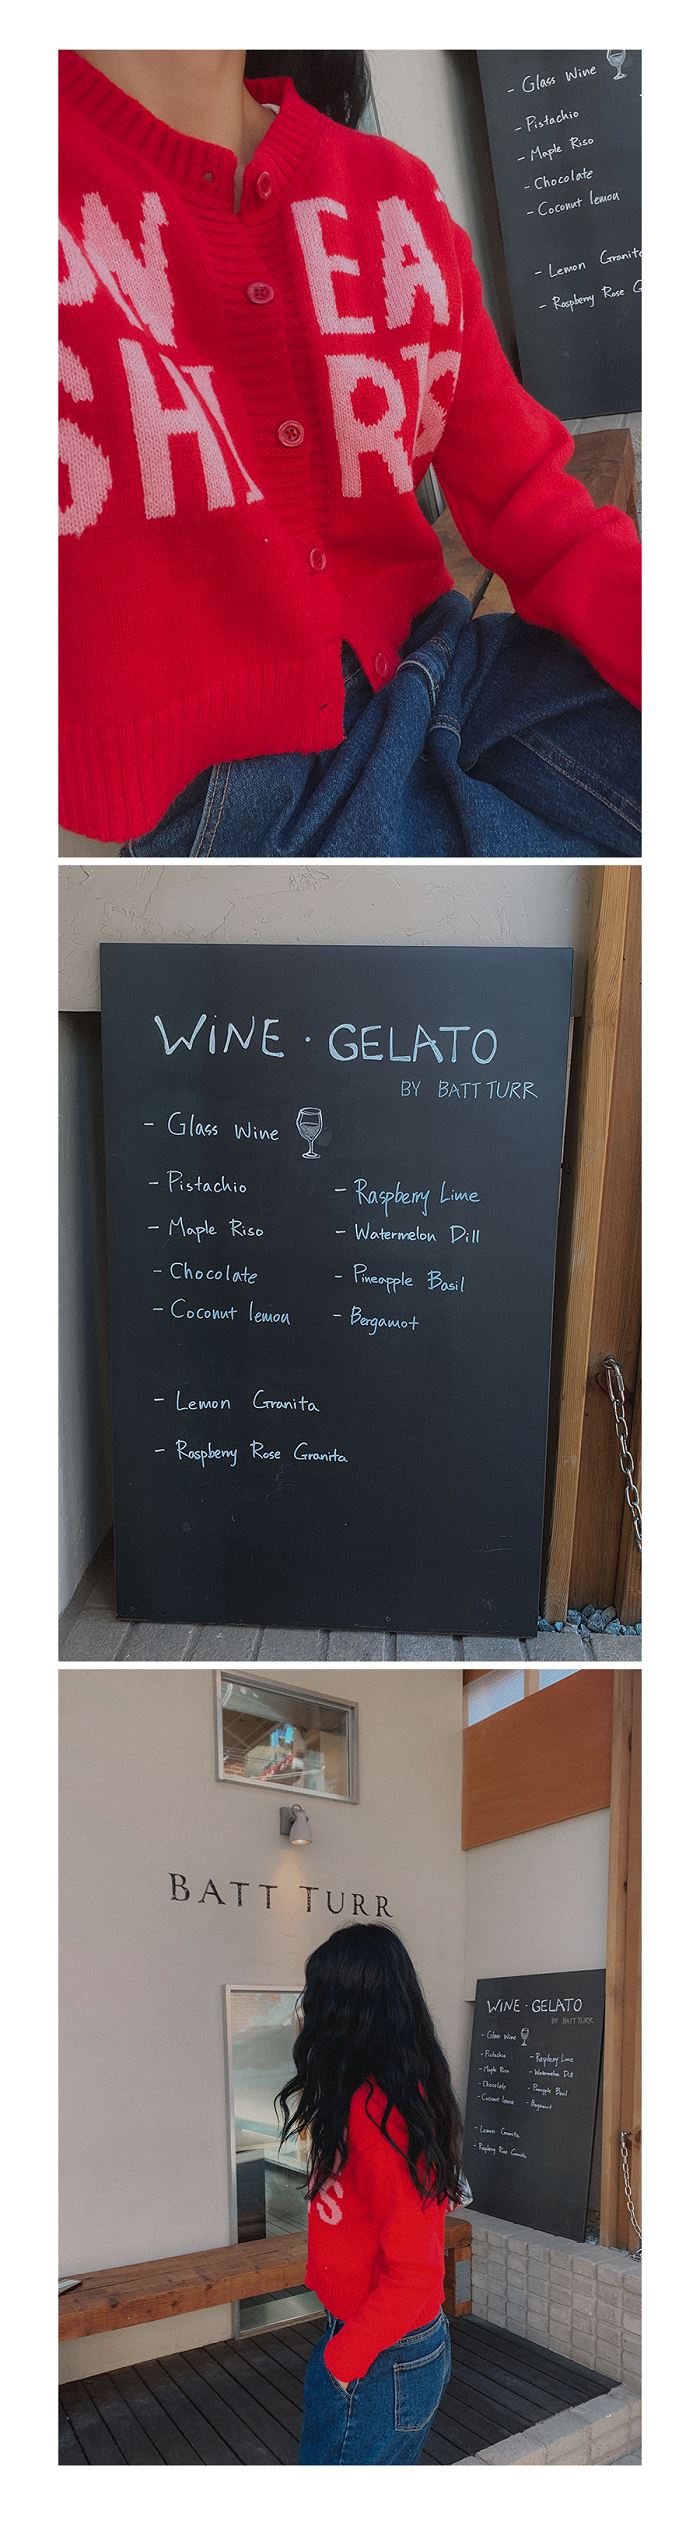 EA
SH RTS
- Glass Wine
- Pistachio
- Maple Riso
- Chocolate
- Coconut lemon
- Lemon Granita
- Raspberry Rose G
WiNE · GELATO
BY BATT TURR
- Glass Wine
- Pistachio
- Maple Riso
- Chocolate
- Coconut lemon
- Raspberry Lime
- Watermelon Dill
- Pineapple Basil
- Bergamot
- Lemon Granita
- Raspberry Rose Granita
BATT TURR
S
WiNE · GELATO
BY BATT TURR
- Glass Wine
- Pistachio
- Maple Riso
- Chocolate
- Coconut lemon
- Raspberry Lime
- Watermelon Dill
- Pineapple Basil
- Bergamot
- Lemon Granita
- Raspberry Rose Granita